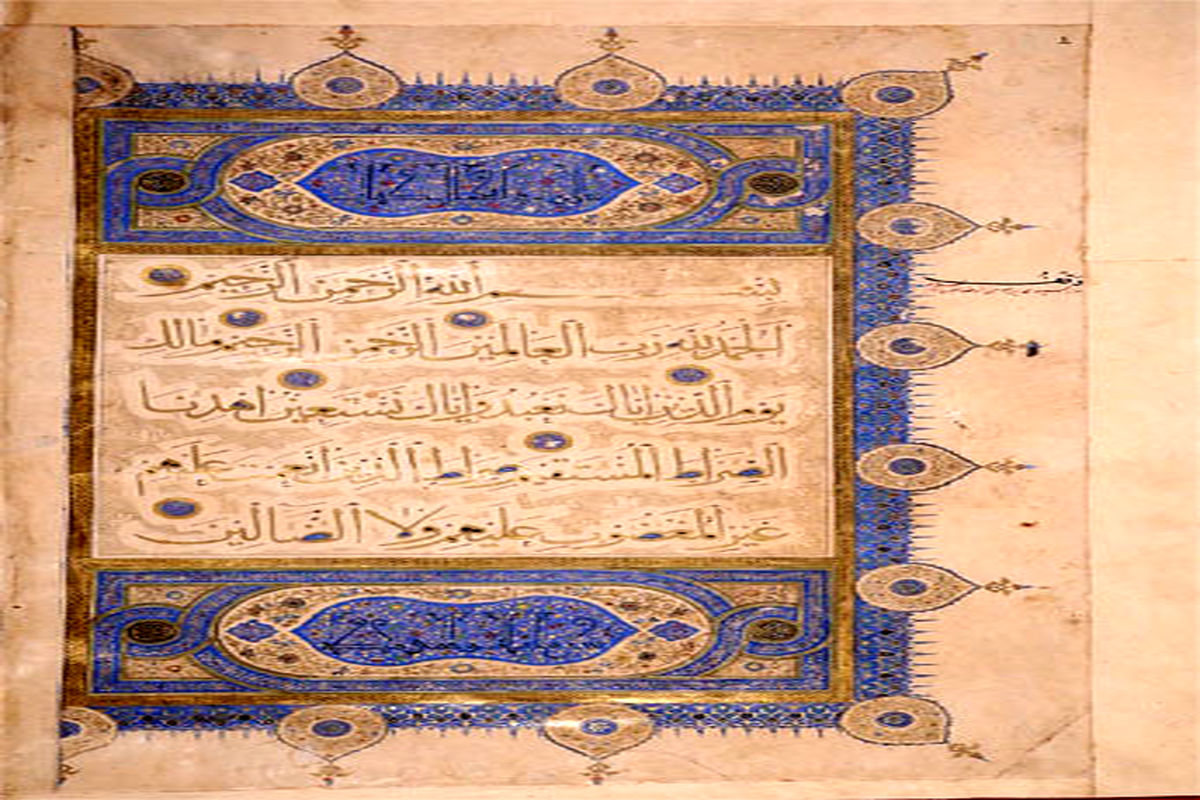 بسم الله الرحمن الرحيم
الحمد لله رب العالمين الرحمن الرحيم مالك
يوم الدين اياك نعبد واياك نستعين اهدنا
الصراط المستقيم صراط الذين انعمت عليهم
غير المغضوب عليهم ولا الضالين
وقف